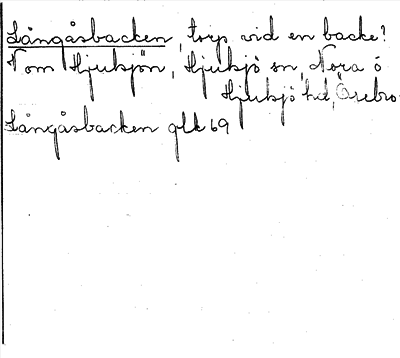 Långåsbacken, torp vid en backe?
N om Hjulsjön, Hjulsjö sn, Nora o
Hjulsjö hd, Örebro
Långåsbacken glk 69